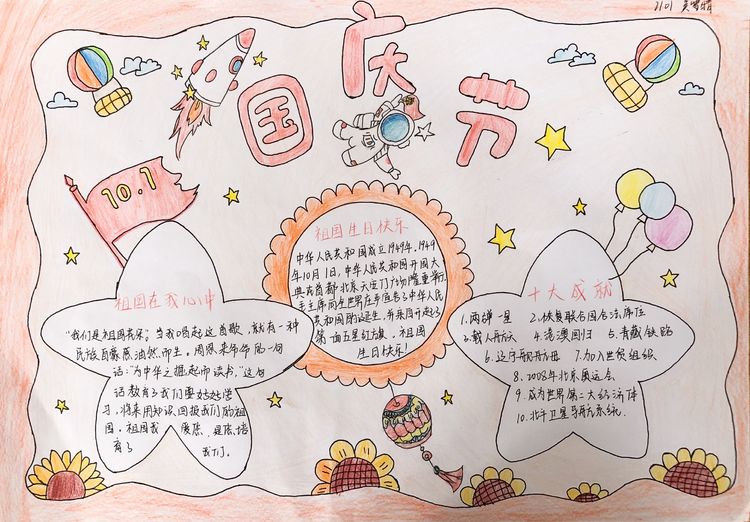 1101
国庆节
10.1
祖国生日快乐
中华人民共和国成立1949年,1949
年10月1日,中华人民共和国开国大
典在首都北京天安门广场隆重举行
毛主席向全世界庄严宣告了中华人民
共和国的诞生,并亲自升起了
第一面五星红旗。祖国
生日快乐!
祖国在我心中
"我们是祖国
当我唱起这首歌,就有一种
民族自豪感油然而生。周恩来
的一句
话:"为中华之崛起而读书。"这句
话教育了我们要好好学
习,将来用知识回报我们的祖
国。祖国我
是您培
育了
我们。
十大成就
1.两弹一星
2.恢复联合国合法席位
3.载人航天
4.港澳回归
5.青藏铁路
6.辽宁舰航母
7.加入世贸组织
8.2008年北京奥运会
9.成为世界第二大经济体
10.北斗卫星导航系统.